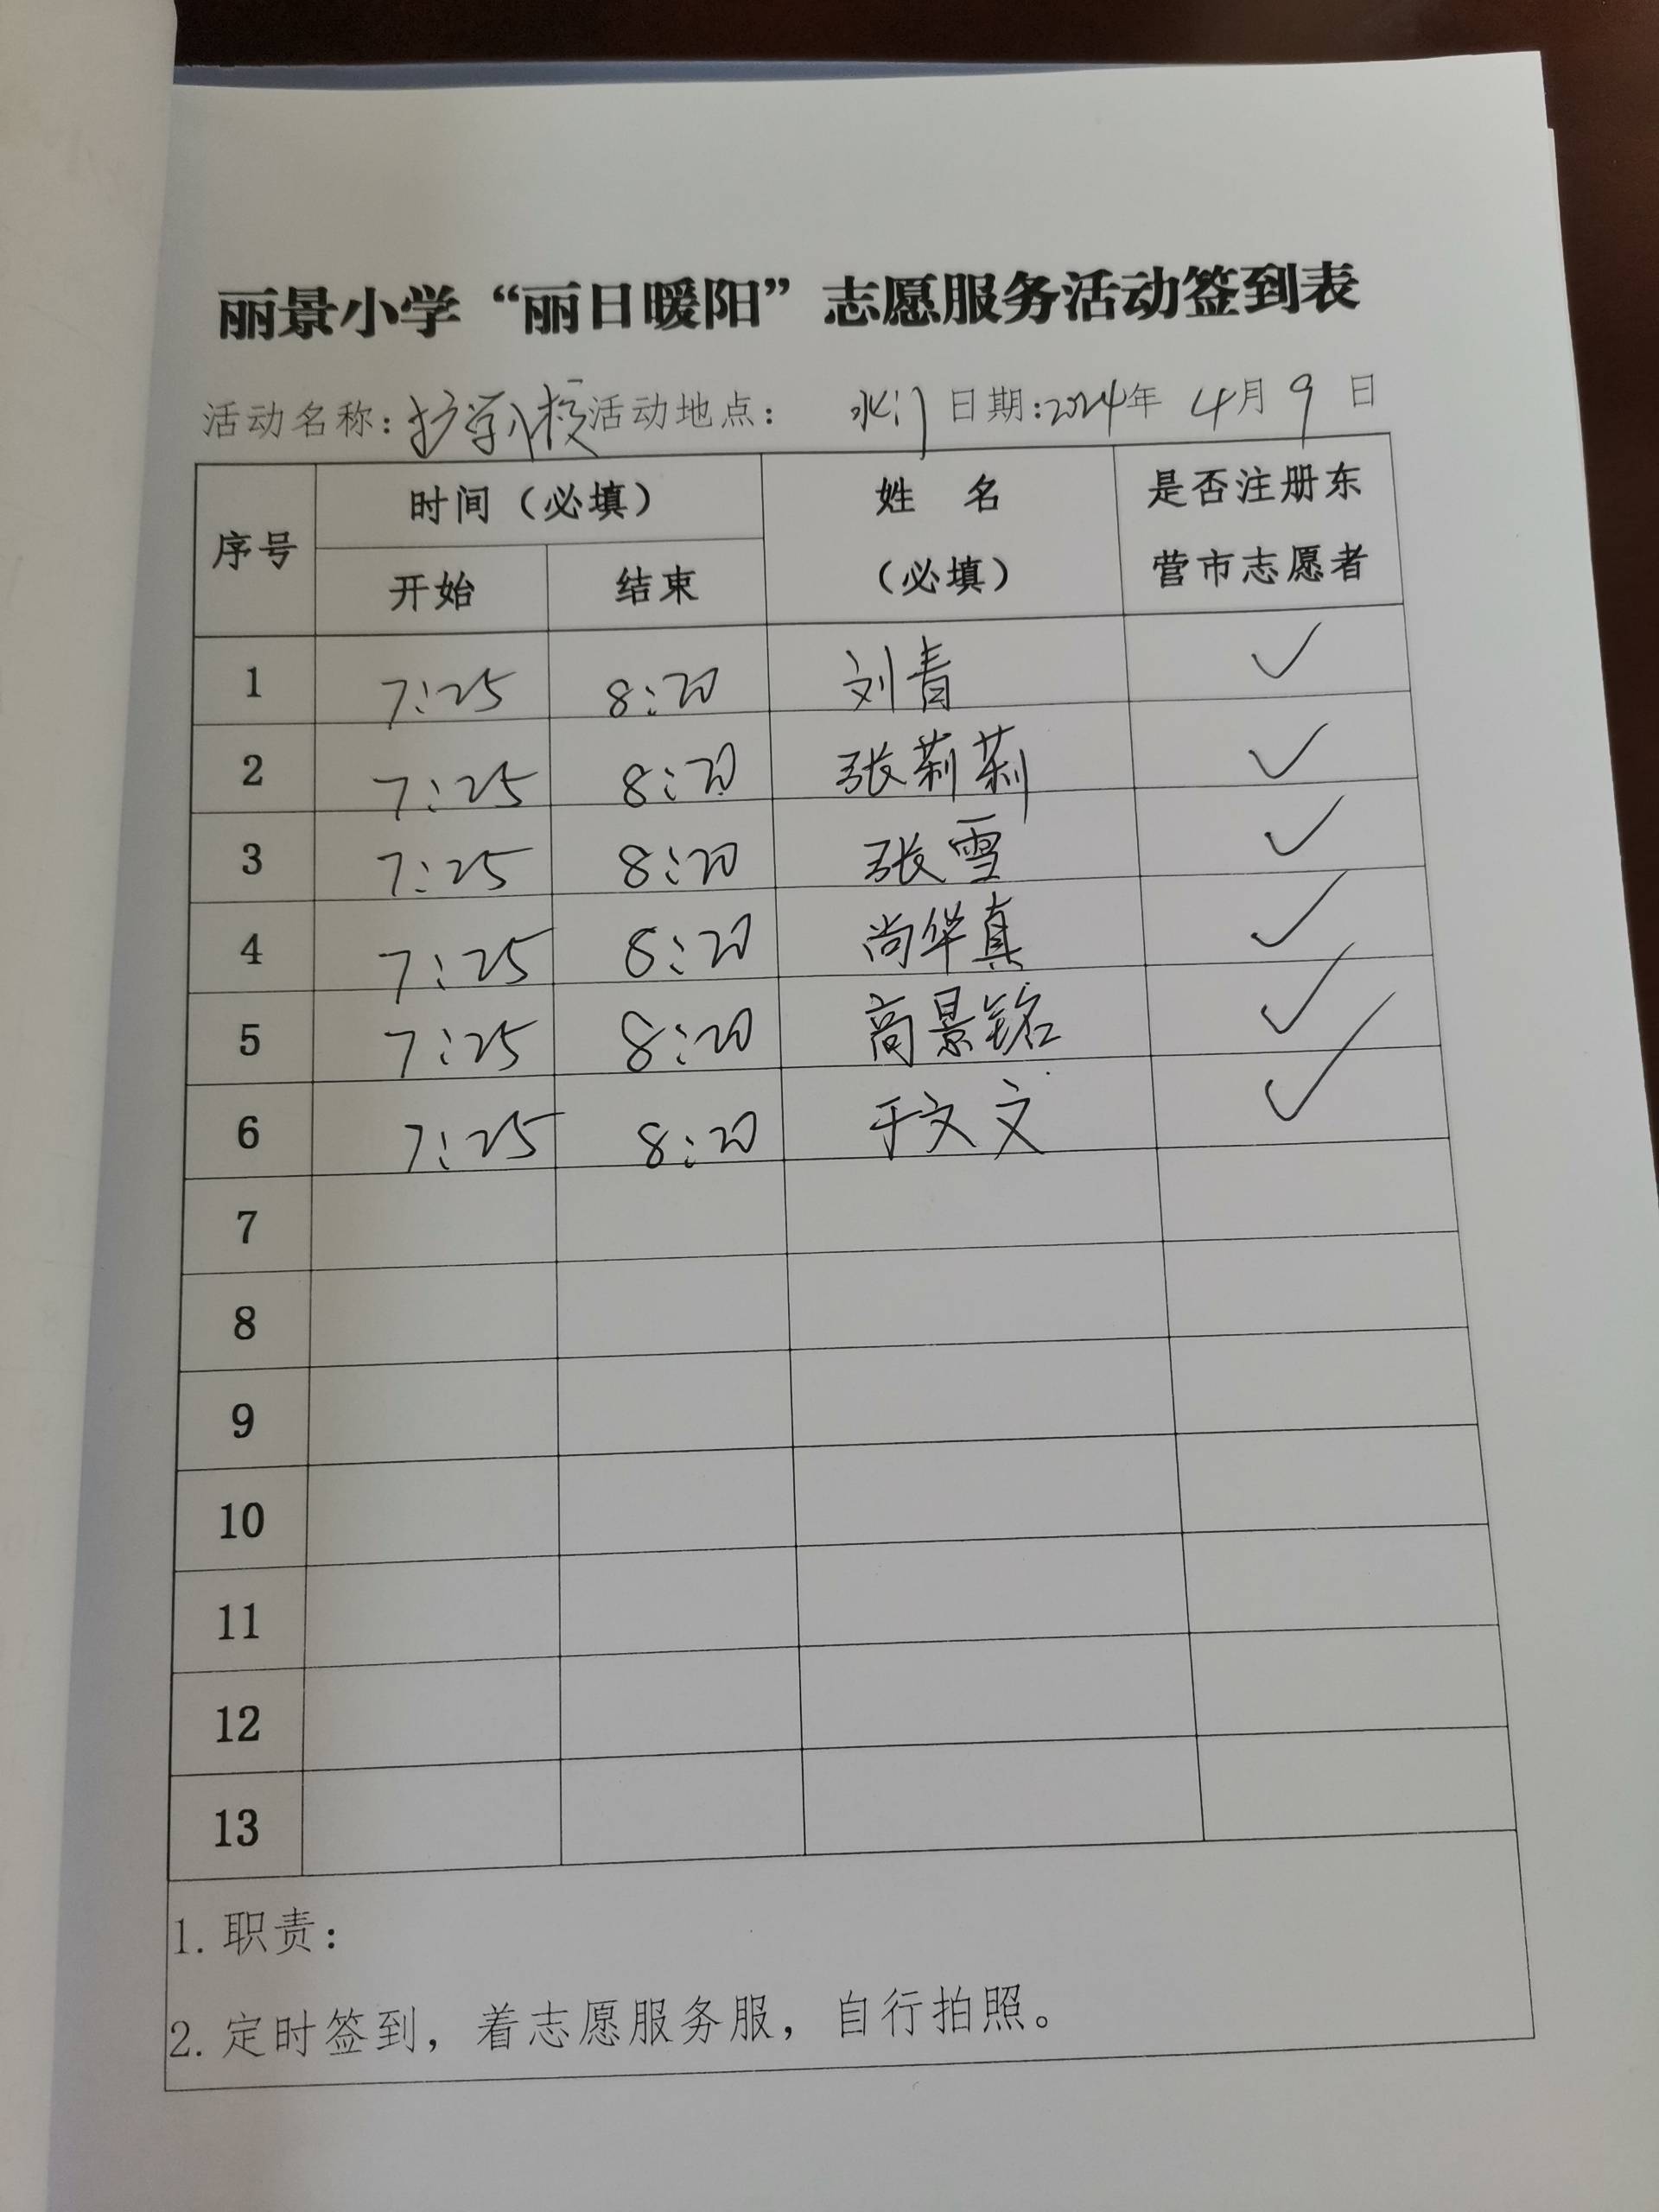 丽景小学“丽日暖阳”志愿服务活动签到表
活动名称：护学小校 活动地点： 水门 日期：2024年 4月 9 日
序号 时间（必填） 姓 名（必填） 是否注册东营市志愿者
开始 结束
1 7:25 8:20 刘青 ✓
2 7:25 8:20 张莉莉 ✓
3 7:25 8:20 张雪 ✓
4 7:25 8:20 尚华真 ✓
5 7:25 8:20 高景铭 ✓
6 7:25 8:20 于文文 ✓
7
8
9
10
11
12
13
1. 职责：
2. 定时签到，着志愿服务服，自行拍照。